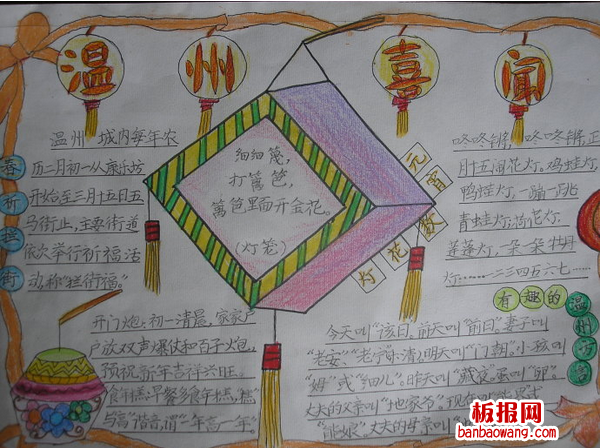 温州喜闻
春祈拦街
温州城内每年农
历二月初一从康乐坊
开始至三月十五日五
马街止,主要街道
依次举行祈福活
动,称"拦街福。"
细细篾,
打篱笆,
篱笆里面开金花。
(灯笼)
元宵歌
灯花
咚咚锵,咚咚锵,正
月十五闹花灯。鸡蛙灯,
鸭蛙灯,一蹦一跳
青蛙灯;荷花灯
莲蓬灯,一朵一朵牡丹
灯……一二三四五六七……
有趣的温州方言
开门炮:初一清晨,家家户
户放双声爆仗和百子火炮,
预祝新年吉祥兴旺。
食年糕:早餐多食年糕,"糕"
与"高"谐音,谓"年高一年"。
今天叫"该日。前天叫"前日"。妻子叫
"老安"、"老宁";清明天叫"门朝"。小孩叫
"姆"或"细儿"。昨天叫"藏夜"。蛋叫"卵"。
丈夫的父亲叫"地家爷"。现在叫
丈夫的母亲叫
板报网
banbaowang.com